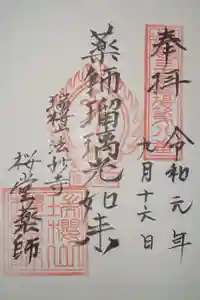 奉拝
令和元年
九月十六日
薬師瑠璃光如来
瑞櫻山法妙寺
桜堂薬師